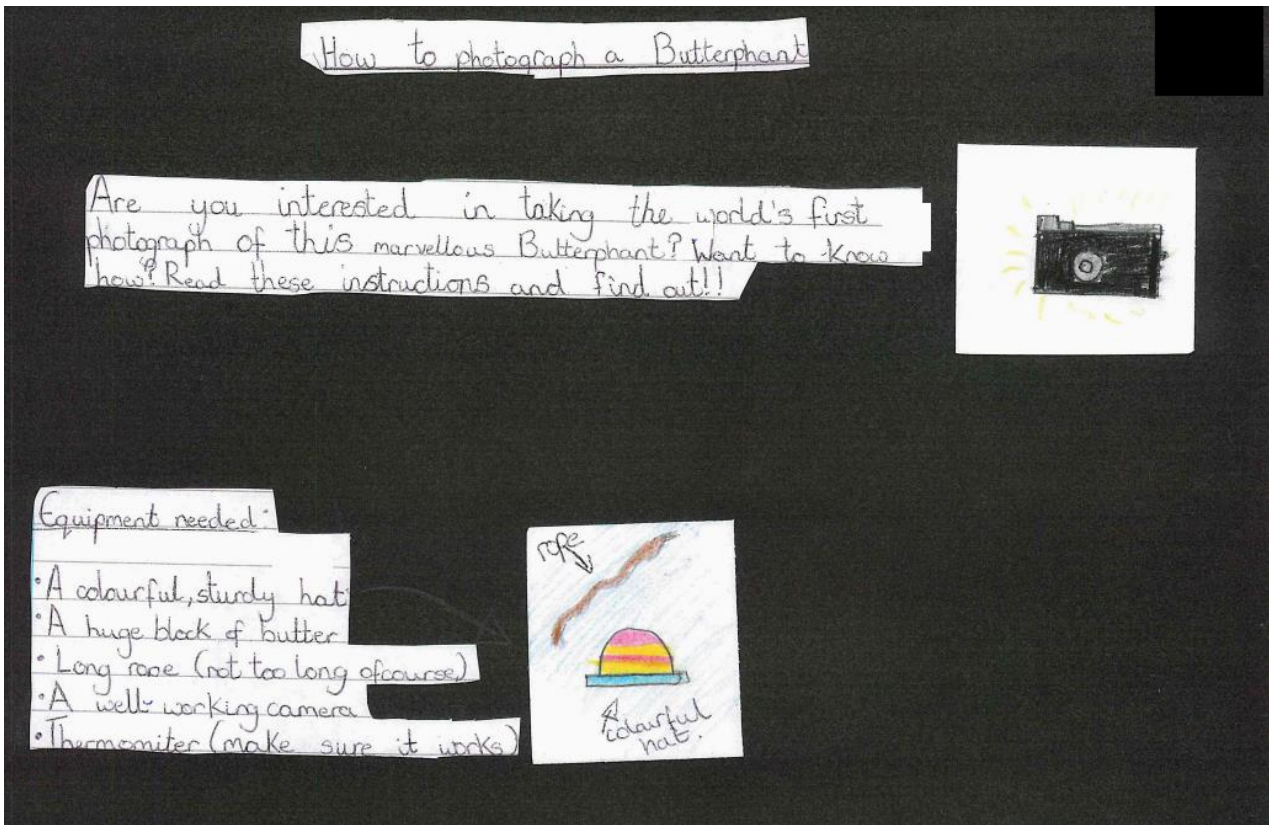 How to photograph a Butterphant
Are you interested in taking the world's first
photograph of this marvellous Butterphant? Want to know
how? Read these instructions and find out!!
Equipment needed:
• A colourful, sturdy hat
• A huge block of butter
• Long rope (not too long ofcourse)
• A well-working camera
• Thermomiter (make sure it works)
rope
colourful
hat.